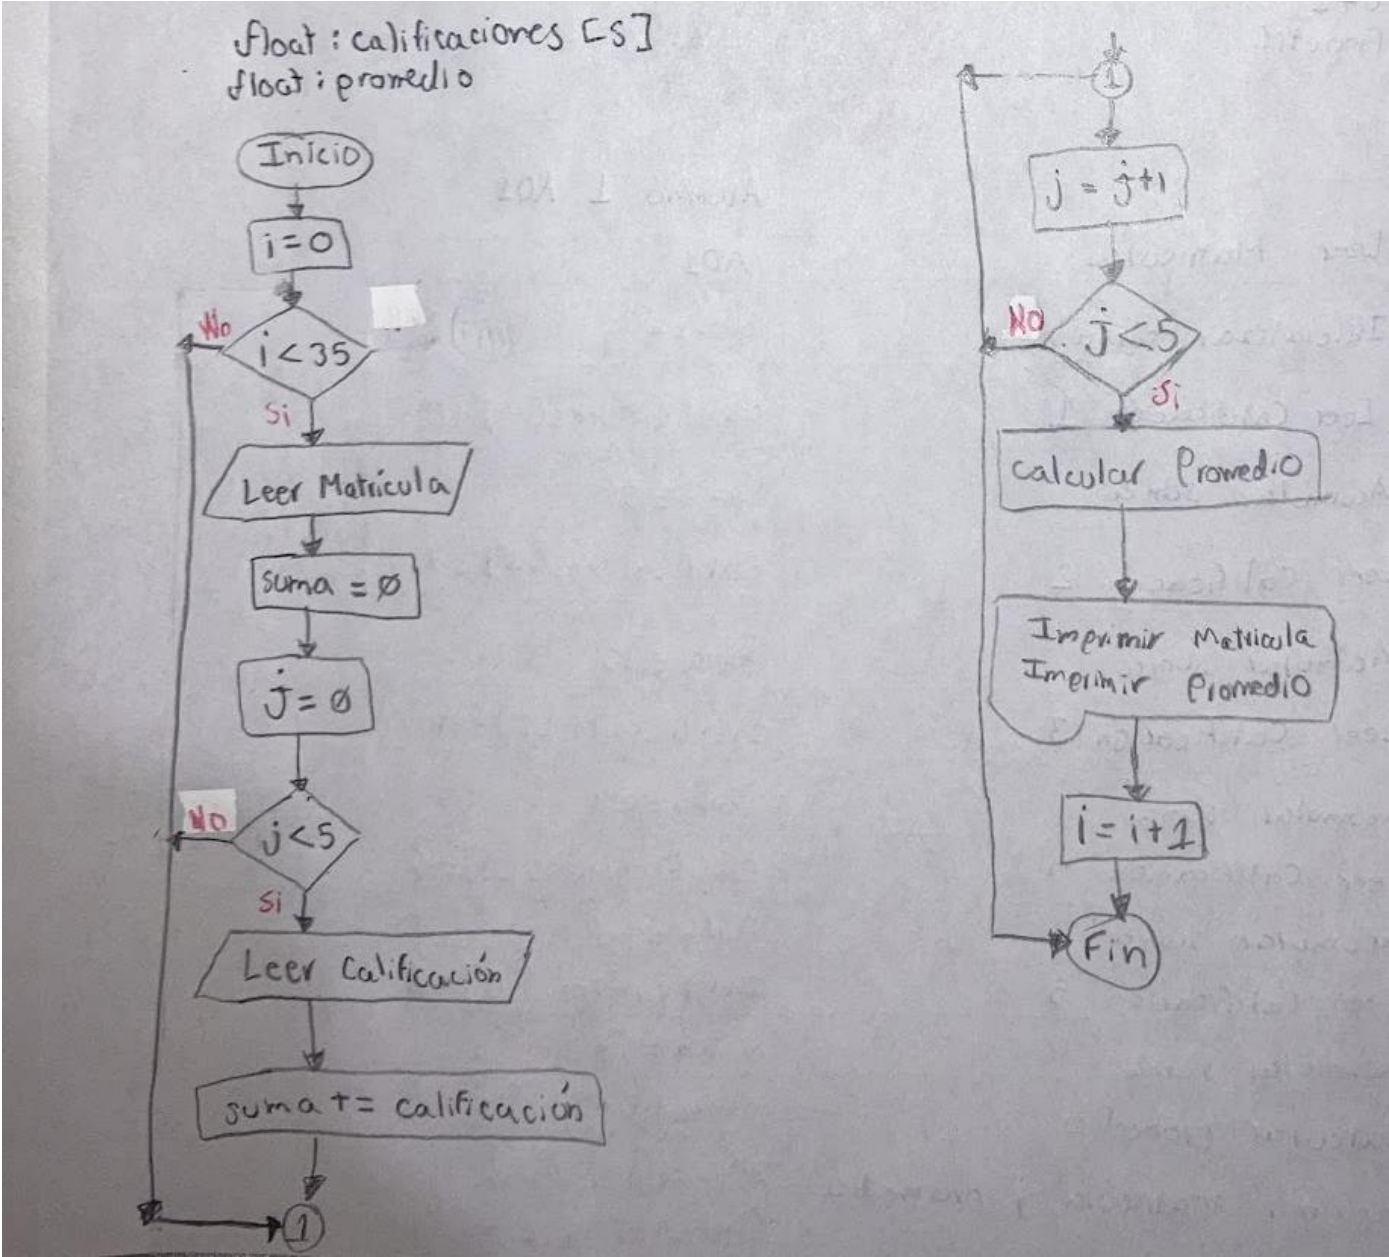 float : calificaciones [5]
float : promedio
Inicio
i = 0
No
i < 35
Si
Leer Matrícula
suma = Ø
j = Ø
No
j < 5
Si
Leer Calificación
suma += calificación
1
1
j = j+1
No
j < 5
Si
Calcular Promedio
Imprimir Matricula
Imprimir Promedio
i = i + 1
Fin